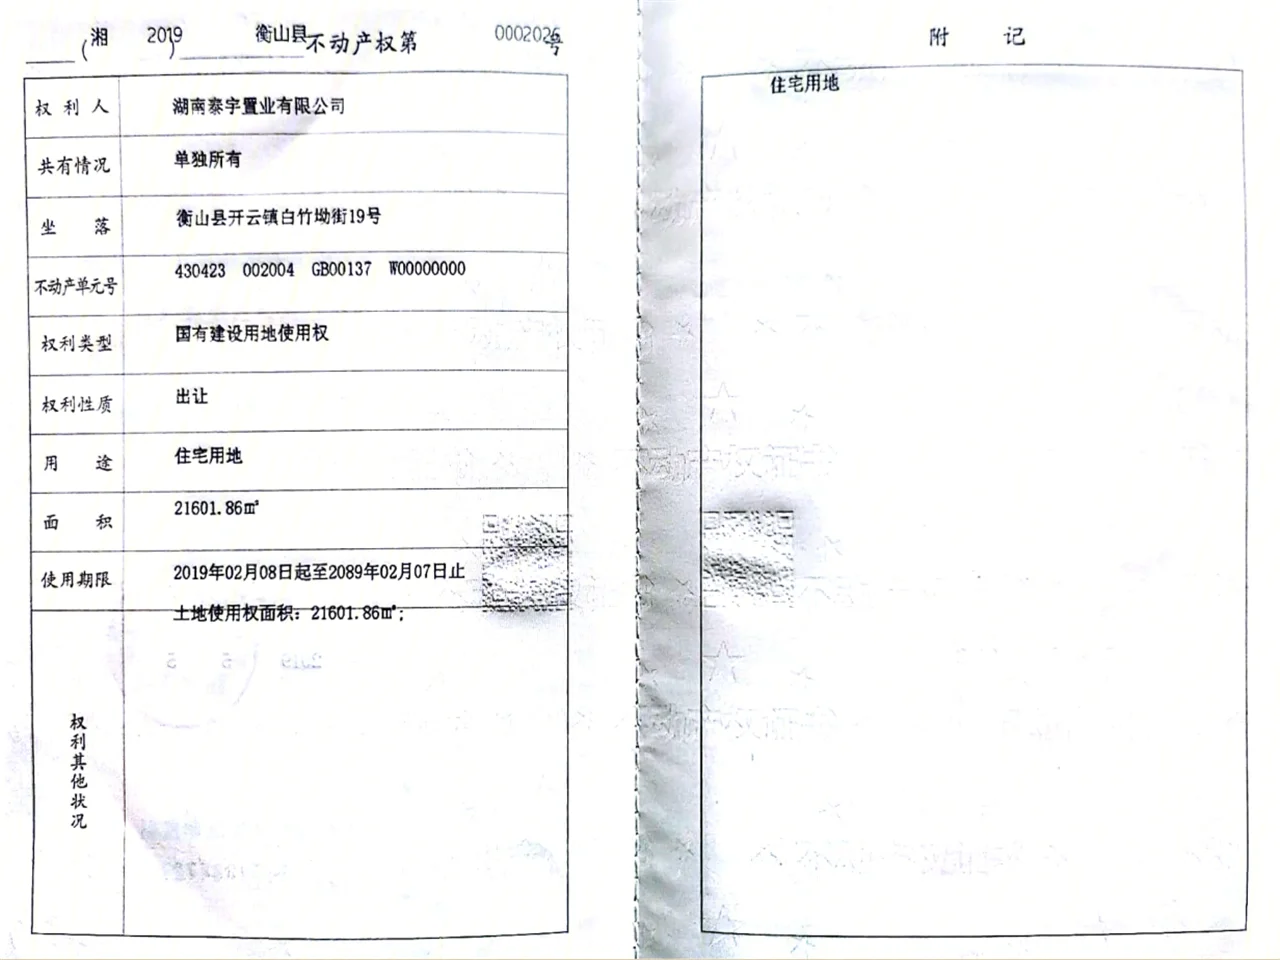 湘（2019）衡山县不动产权第0002026号
权利人 湖南泰宇置业有限公司
共有情况 单独所有
坐落 衡山县开云镇白竹坳街19号
不动产单元号 430423 002004 GB00137 W00000000
权利类型 国有建设用地使用权
权利性质 出让
用途 住宅用地
面积 21601.86㎡
使用期限 2019年02月08日起至2089年02月07日止
土地使用权面积：21601.86㎡;
权利其他状况
附 记
住宅用地